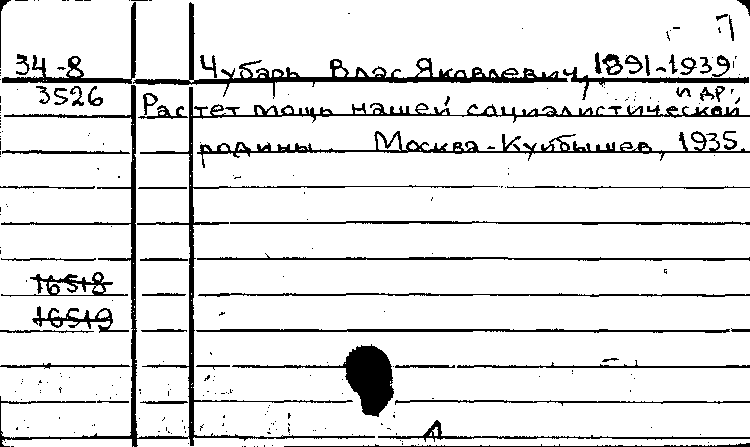 34-8 Чубарь, Влас Яковлевич, 1891-1939
и др.
3526 Растет мощь нашей социалистической
родины. Москва-Куйбышев, 1935.
16518
16519